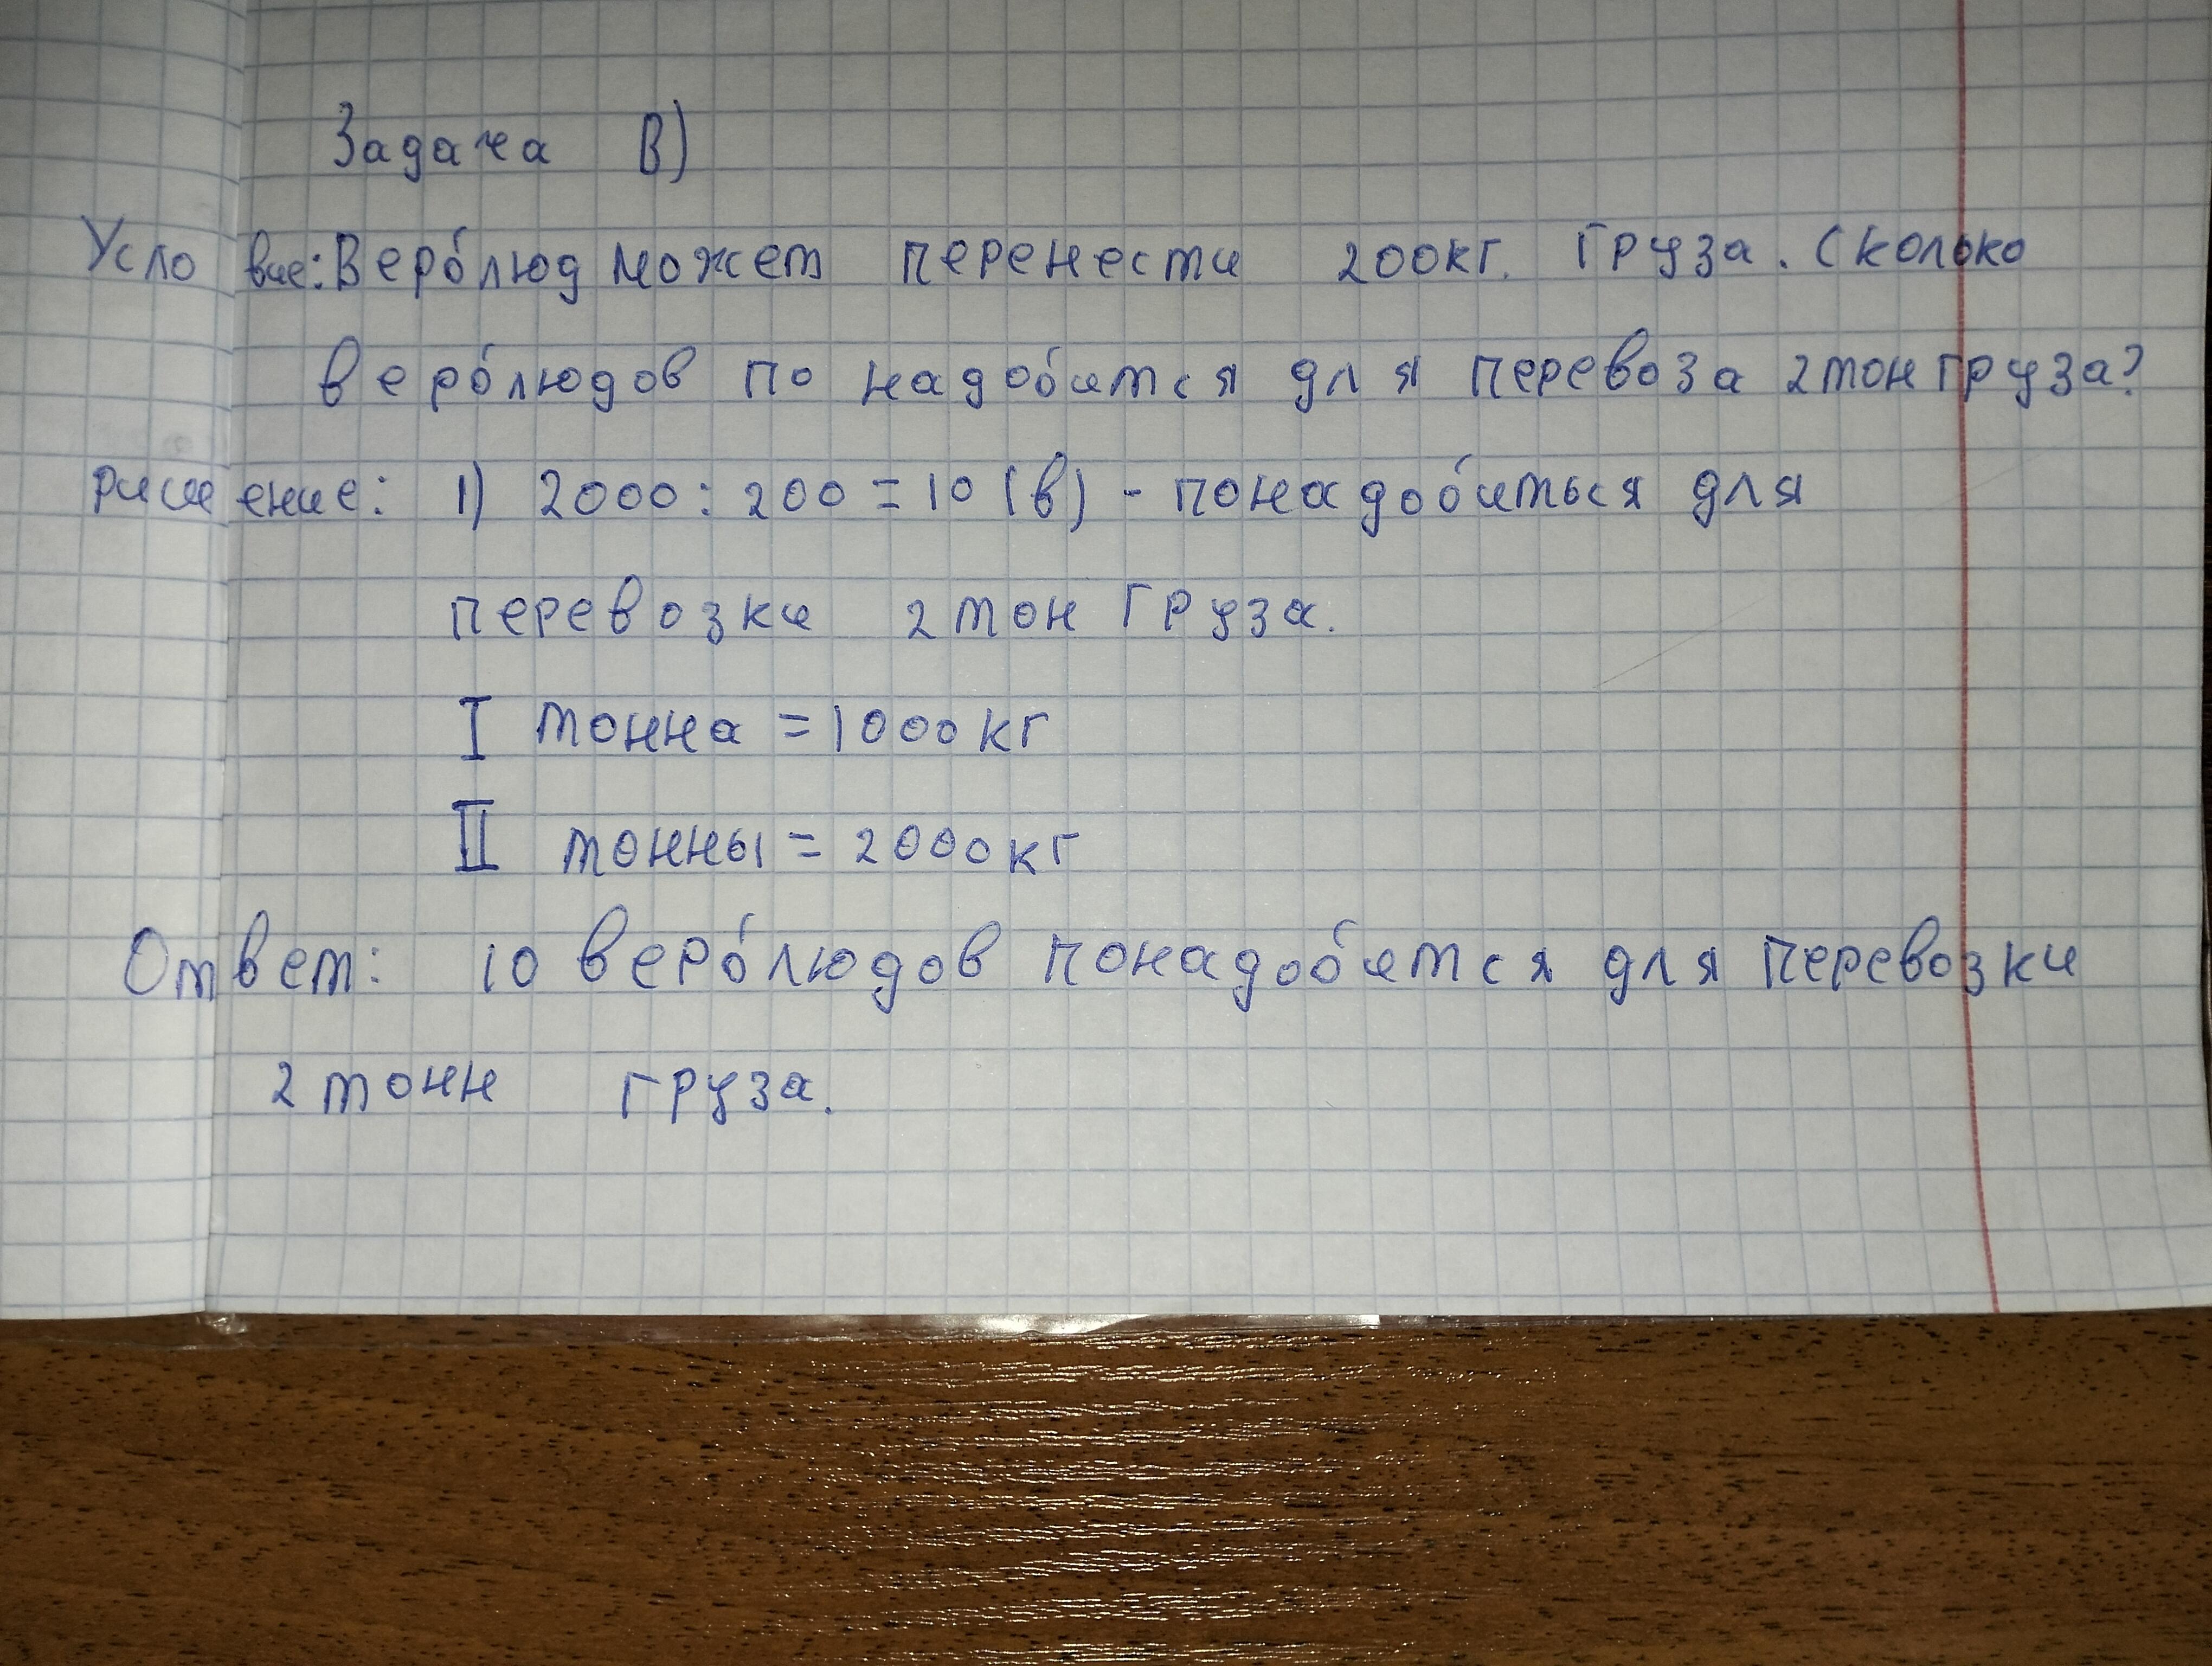 Задача В)
Условие: Верблюд может перенести 200кг. груза. Сколько
верблюдов понадобится для перевоза 2 тон груза?
Ришение: 1) 2000 : 200 = 10 (в) - понадобиться для
перевозки 2 тон груза.
I тонна = 1000 кг
II тонны = 2000 кг
Ответ: 10 верблюдов понадобится для перевозки
2 тонн груза.